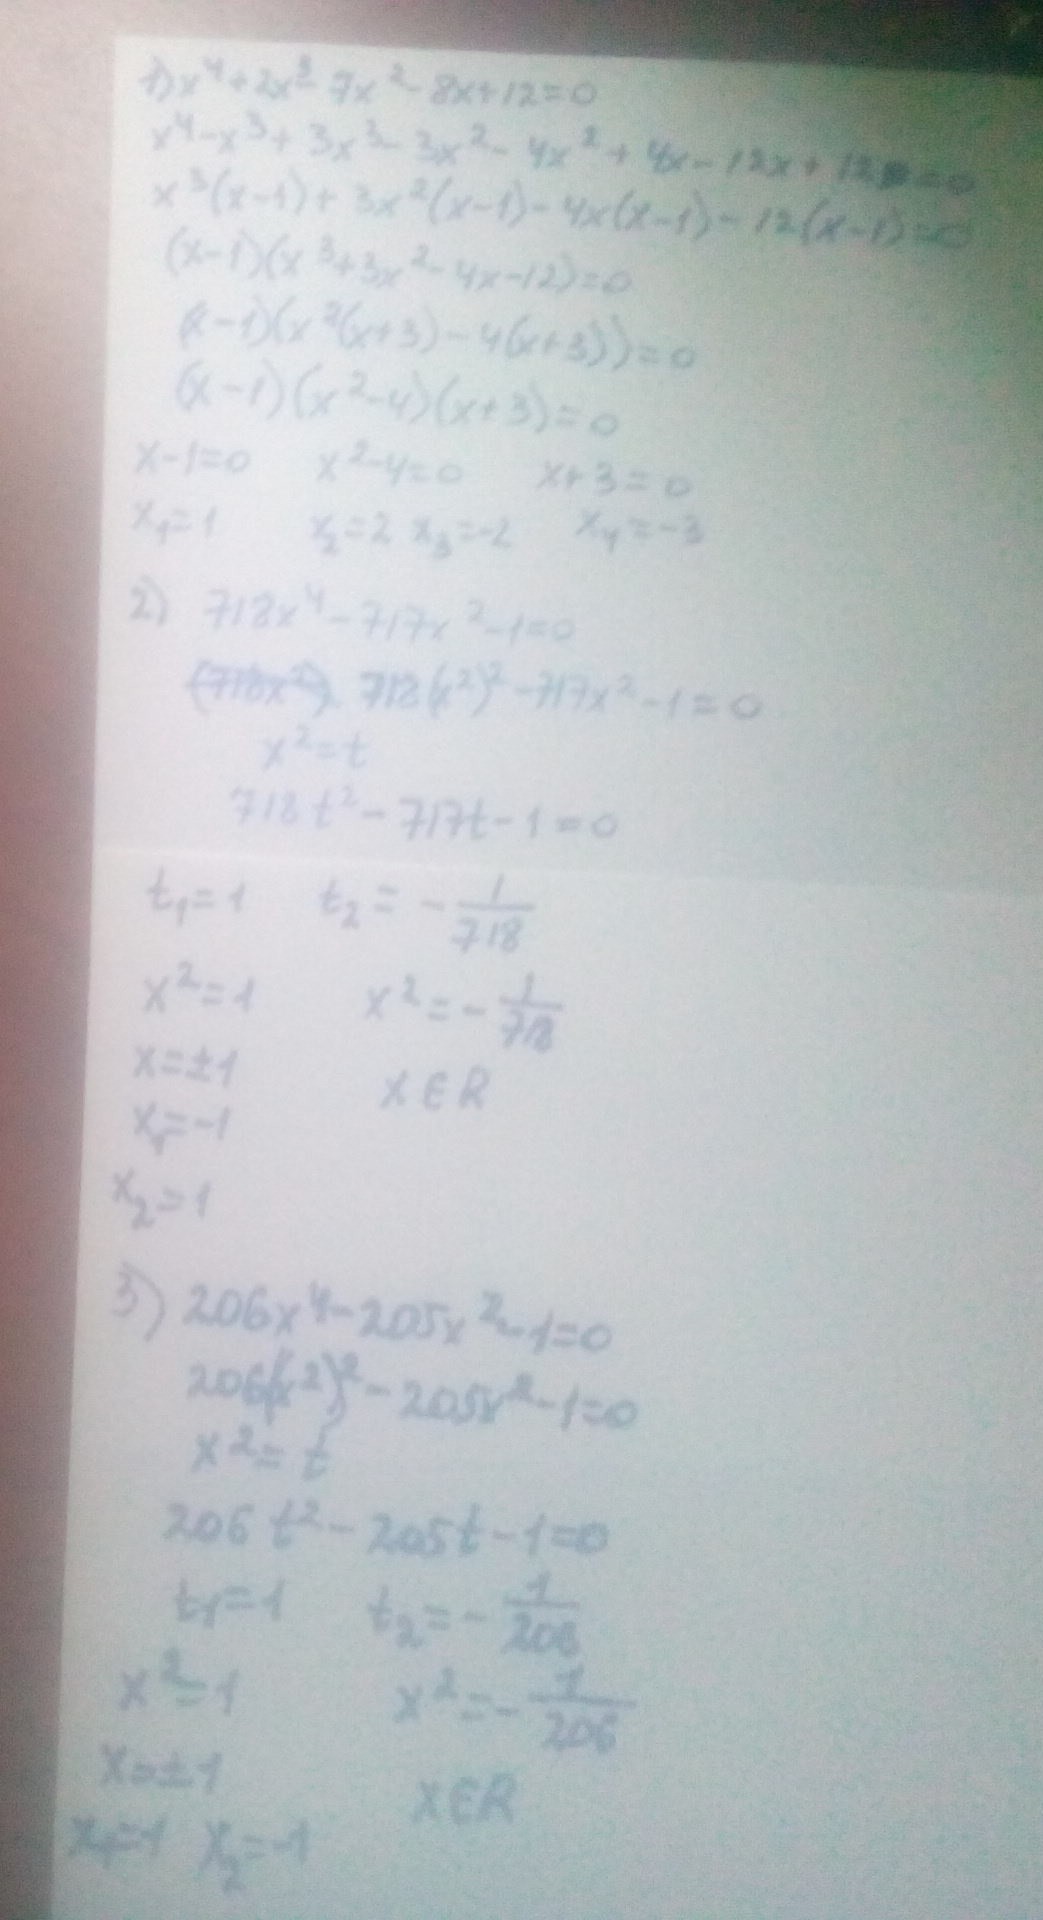 1) x⁴+2x³-7x²-8x+12=0
x⁴-x³+3x³-3x²-4x²+4x-12x+12=0
x³(x-1)+3x²(x-1)-4x(x-1)-12(x-1)=0
(x-1)(x³+3x²-4x-12)=0
(x-1)(x²(x+3)-4(x+3))=0
(x-1)(x²-4)(x+3)=0
x-1=0 x²-4=0 x+3=0
x₁=1 x₂=2 x₃=-2 x₄=-3
2) 718x⁴-717x²-1=0
718(x²)²-717x²-1=0
x²=t
718t²-717t-1=0
t₁=1 t₂=-1/718
x²=1 x²=-1/718
x=±1 x∈R
x₁=-1
x₂=1
3) 206x⁴-205x²-1=0
206(x²)²-205x²-1=0
x²=t
206t²-205t-1=0
t₁=1 t₂=-1/206
x²=1 x²=-1/206
x=±1 x∈R
x₁=1 x₂=-1